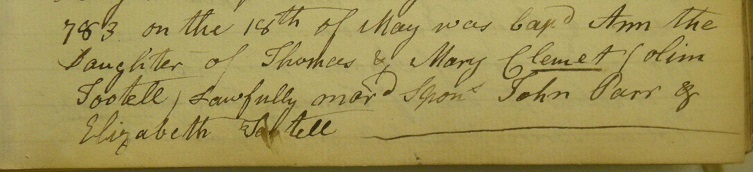 783 on the 18th of May was bap'd Ann the
Daughter of Thomas & Mary Clemet (olim
Tootell) Lawfully mar'd Spon's John Parr &
Elizabeth Tootell